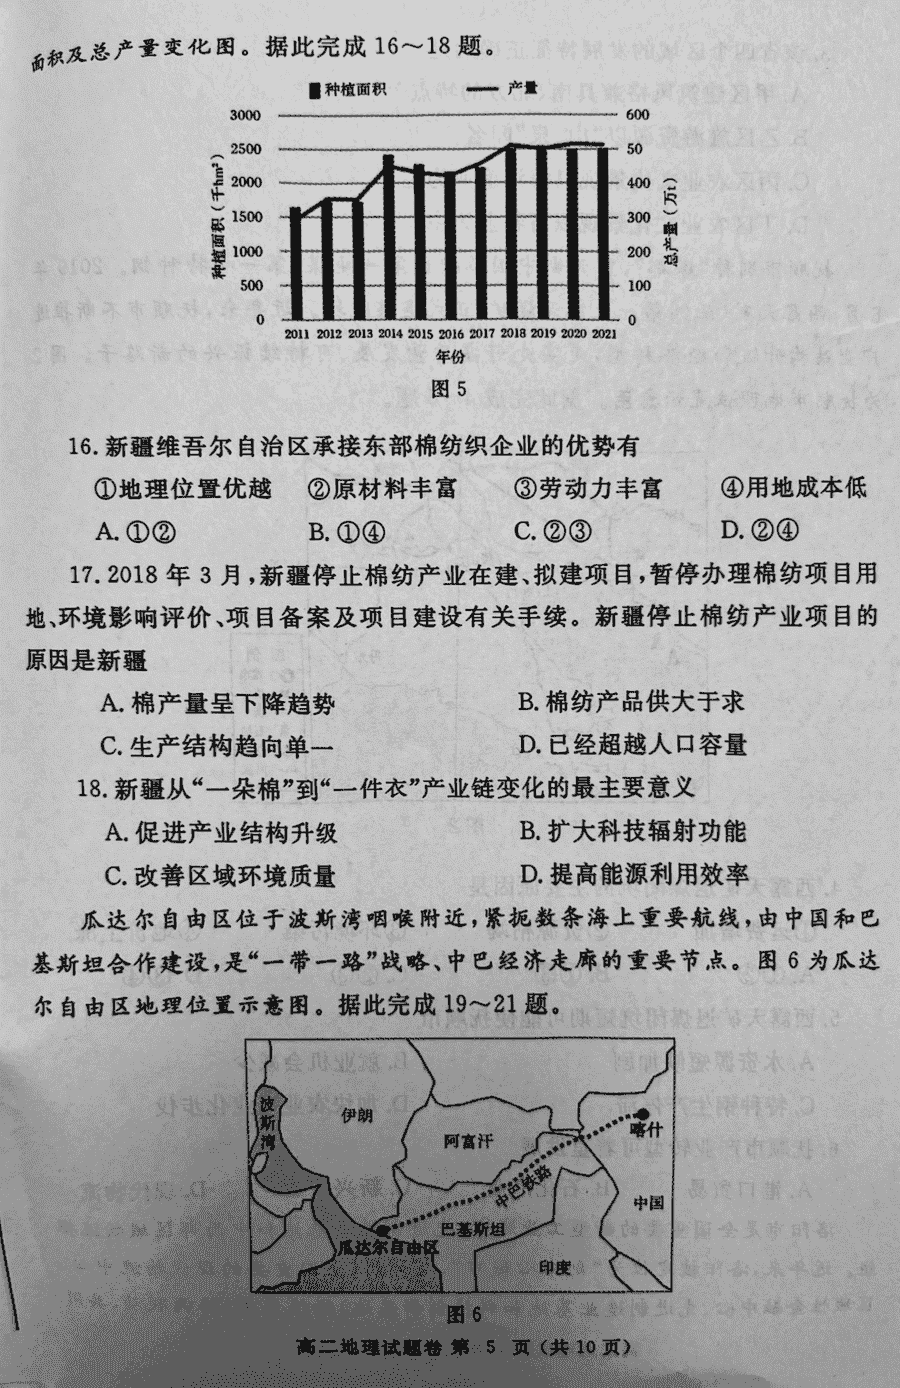 面积及总产量变化图。据此完成16～18题。
种植面积 产量
3000 600
2500 50
2000 400
1500 300
1000 200
500 100
0 0
种植面积（千hm²）
总产量（万t）
2011 2012 2013 2014 2015 2016 2017 2018 2019 2020 2021
年份
图5
16.新疆维吾尔自治区承接东部棉纺织企业的优势有
①地理位置优越 ②原材料丰富 ③劳动力丰富 ④用地成本低
A.①② B.①④ C.②③ D.②④
17.2018年3月,新疆停止棉纺产业在建、拟建项目,暂停办理棉纺项目用
地、环境影响评价、项目备案及项目建设有关手续。新疆停止棉纺产业项目的
原因是新疆
A.棉产量呈下降趋势 B.棉纺产品供大于求
C.生产结构趋向单一 D.已经超越人口容量
18.新疆从“一朵棉”到“一件衣”产业链变化的最主要意义
A.促进产业结构升级 B.扩大科技辐射功能
C.改善区域环境质量 D.提高能源利用效率
瓜达尔自由区位于波斯湾咽喉附近,紧扼数条海上重要航线,由中国和巴
基斯坦合作建设,是“一带一路”战略、中巴经济走廊的重要节点。图6为瓜达
尔自由区地理位置示意图。据此完成19～21题。
波斯湾
伊朗
阿富汗
喀什
中巴铁路
中国
巴基斯坦
瓜达尔自由区
印度
图6
高二地理试题卷 第 5 页(共10页)